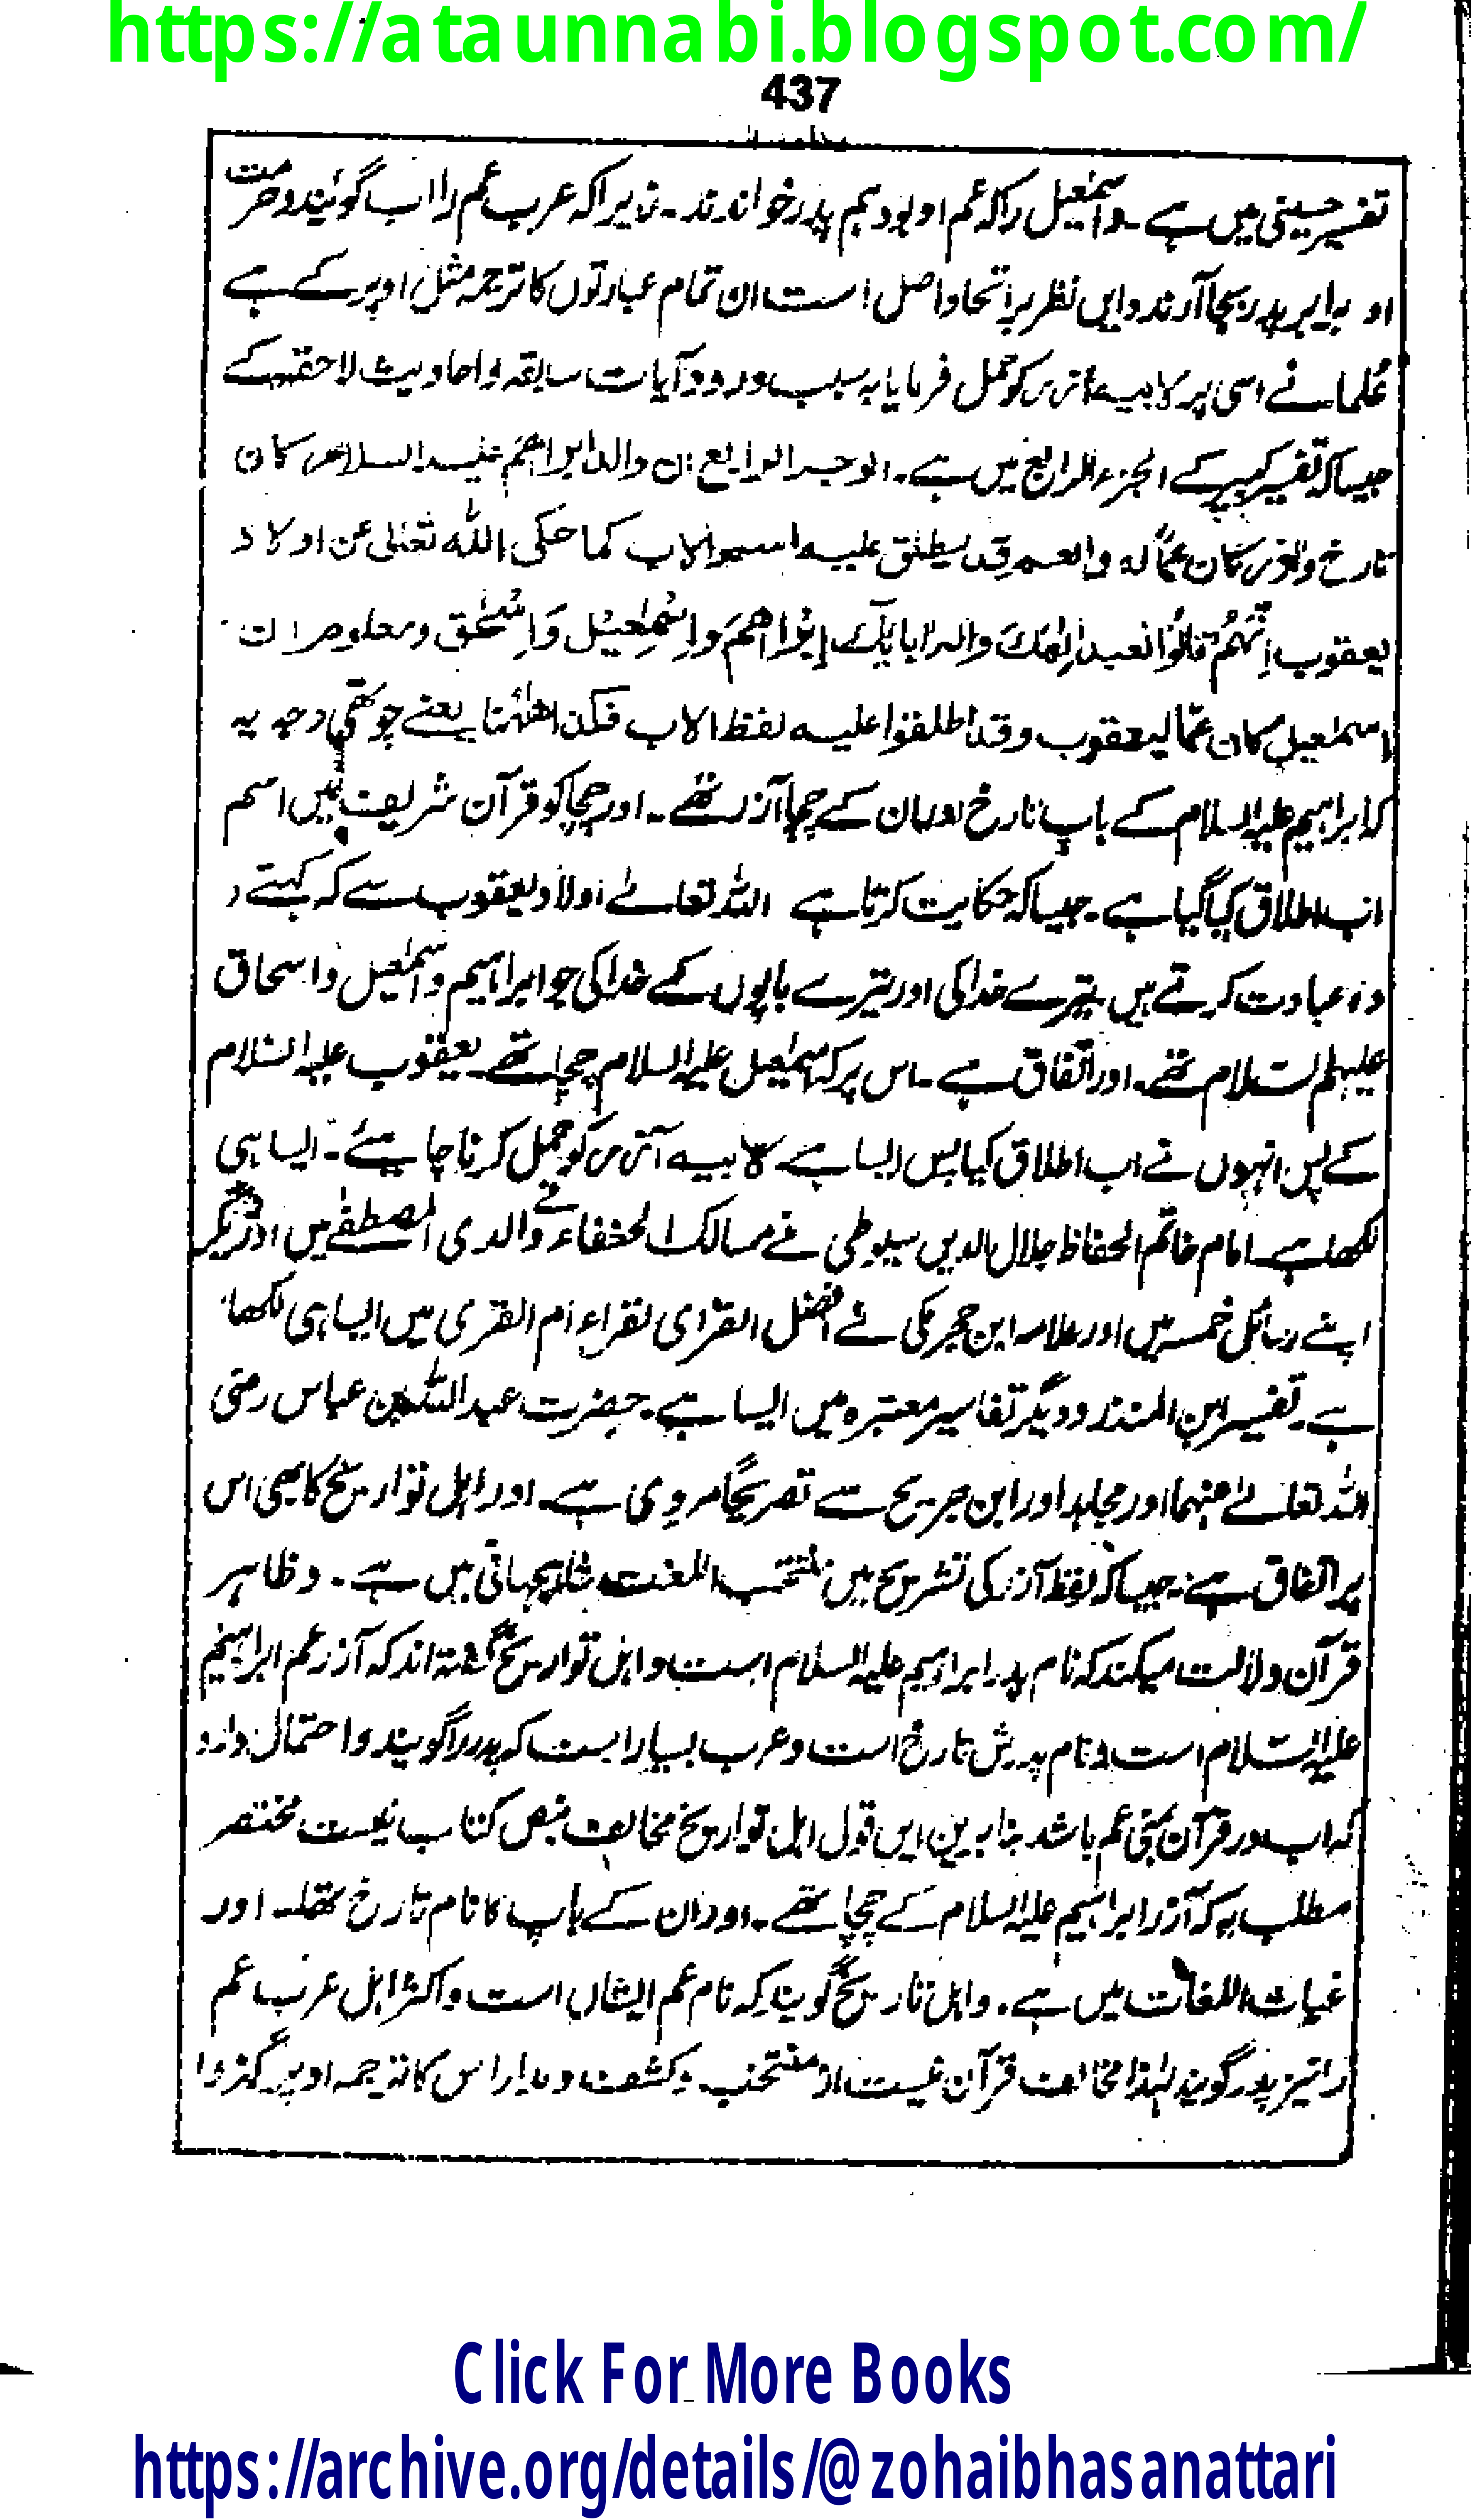 https://ataunnabi.blogspot.com/
437
تفسیر حسینی میں ہے۔ واسمٰعیل راکہ عم او بود ہم پدر خواندند۔ زیراکہ عرب عم را اب گویند و حرمت
او برابر پدر بجا آرند و ایں نظر بر اتحاد اصل است ان تمام عبارتوں کا ترجمہ مثل اوپر کے ہے
علما نے اسی پر لابیہ ازر کو حمل فرمایا بہ سبب ورود آیات سابقہ و احادیث لاحقہ کے
جیسا کہ تفسیر کبیر کے الجزء الرابع میں ہے۔ الوجہ الرابع ان والد ابراھیم علیہ السلام کان
تارخ و اٰزر کان عمًا لہ والعم قد یطلق علیہ اسم الاب کما حکی اللہ تعالیٰ عن اولاد
یعقوب انھم قالوا نعبد الٰھک والٰہ اٰبائک ابراھم واسمٰعیل واسحٰق ومعلوم ان
اسمٰعیل کان عمًّا لیعقوب وقد اطلقوا علیہ لفظ الاب فکذا ھٰھنا یعنے چوتھی وجہ یہ
کہ ابراہیم علیہ السلام کے باپ تارخ اور ان کے چچا آزر تھے۔ اور چچا کو قرآن شریف میں اسم
اب اطلاق کیا گیا ہے۔ جیسا کہ حکایت کرتا ہے اللہ تعالےٰ اولاد یعقوب سے کہ کہتے
وہ عبادت کرتے ہیں تیرے خدا کی اور تیرے باپوں کے خدا کی جو ابراہیم و اسمٰعیل و اسحاق
علیہم السلام تھے۔ اور اتفاق ہے۔ اس پر کہ اسمٰعیل علیہ السلام چچا تھے یعقوب علیہ السلام
کے پس انہوں نے اب اطلاق کیا پس ایسا ہے لابیہ آزر کو حمل کرنا چاہیئے۔ ایسا ہی
لکھا ہے امام خاتم الحفاظ جلال الدین سیوطی نے مسالک الحنفاء فے والدی المصطفےٰ میں اور دیگر
اپنے رسائل خمسہ میں اور علامہ ابن حجر مکی نے افضل القرٰی لقراء ام القری میں ایسا ہی لکھا
ہے۔ تفسیر ابن المنذر و دیگر تفاسیر معتبرہ میں ایسا ہے۔ حضرت عبد اللہ بن عباس رضی
اللہ تعالےٰ عنہما اور مجاہد اور ابن جریج سے تصریحًا مروی ہے۔ اور اہل تواریخ کا بھی اس
پر اتفاق ہے۔ جیسا کہ لفظ آزر کی تشریح میں منتخب اللغت شاہجہانی میں ہے۔ و ظاہر
قرآن دلالت میکند کہ نام پدر ابراہیم علیہ السلام است و اہل تواریخ گفتہ اند کہ آزر عم ابراہیم
علیہ السلام است و نام پدرش تارخ است و عرب بسیار است کہ پدر را گویند و احتمال دارد
کہ اب در قرآن بمعنی عم باشد بنا بریں ایں قول اہل تواریخ مخالف نص کتاب نیست مختصر
مطلب یہ کہ آزر ابراہیم علیہ السلام کے چچا تھے۔ اور ان کے باپ کا نام تارخ تھا۔ اور
غیاث اللغات میں ہے۔ و اہل تاریخ گویند کہ نام عم ایشاں است و اکثر اہل عرب عم
را نیز پدر گویند لہٰذا مخالف قرآن نیست از منتخب و کشف و مدار اس کا ترجمہ اوپر گذرا
Click For More Books
https://archive.org/details/@zohaibhasanattari